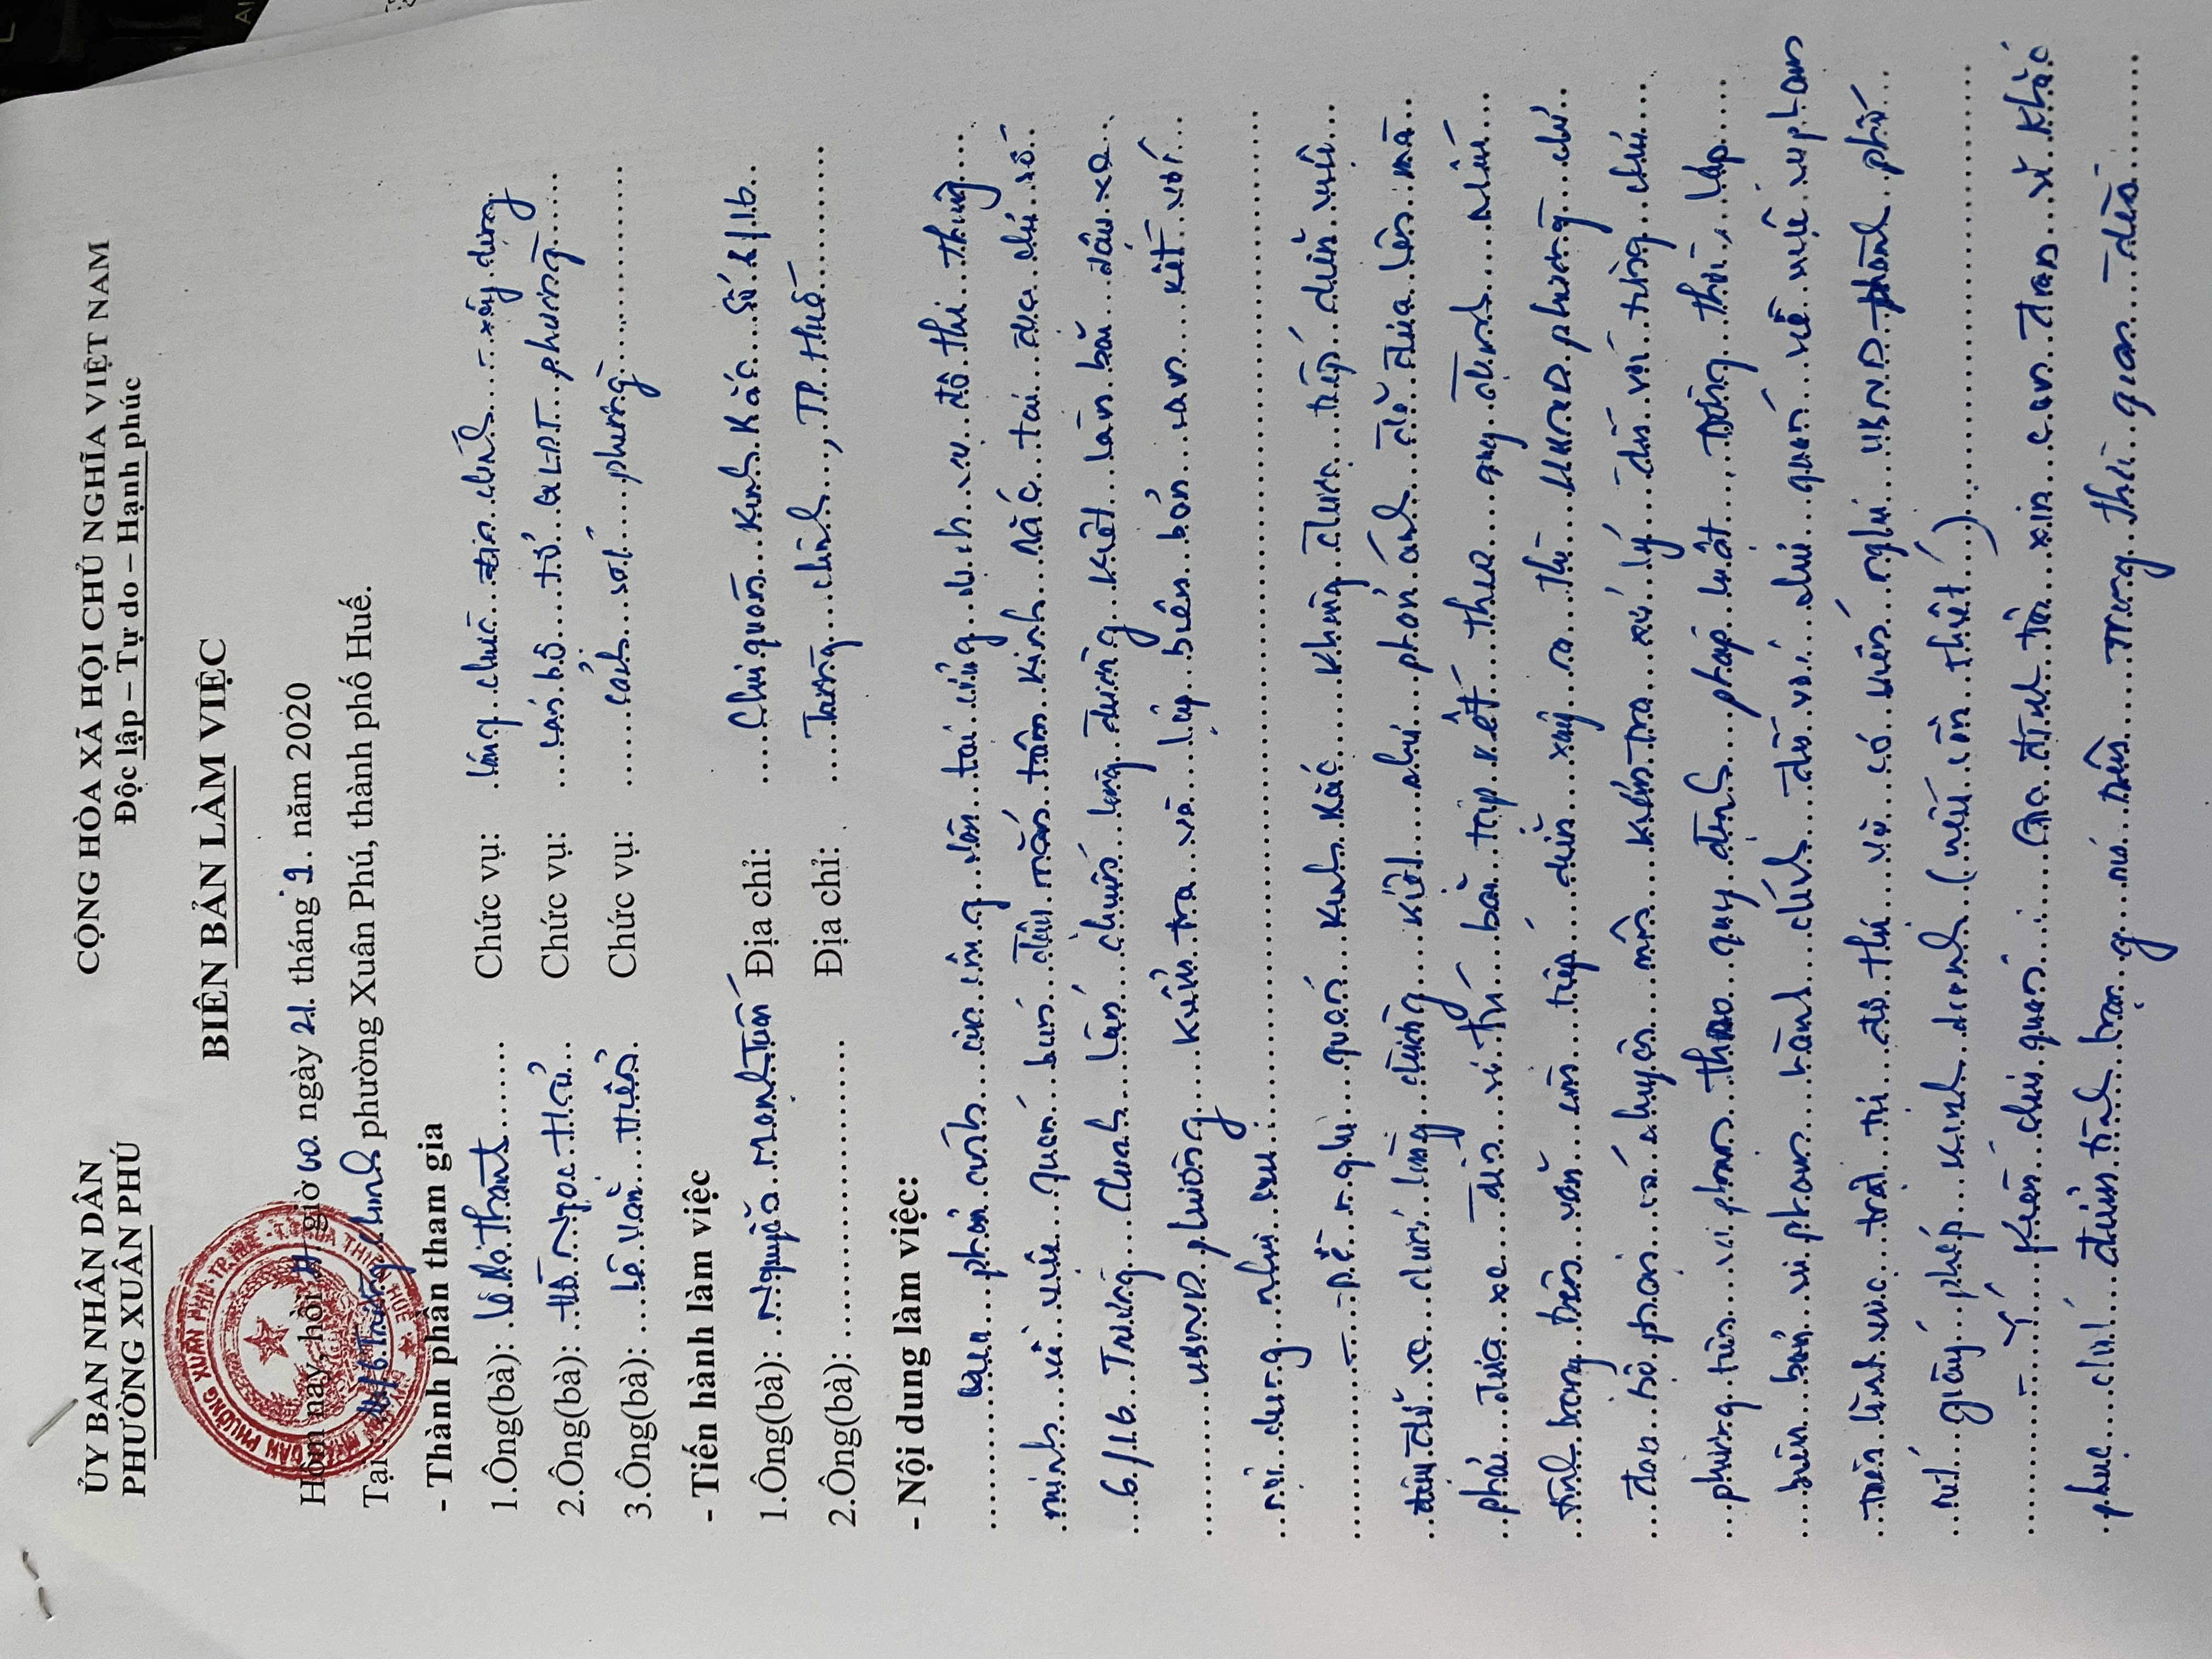 ỦY BAN NHÂN DÂN
PHƯỜNG XUÂN PHÚ
CỘNG HÒA XÃ HỘI CHỦ NGHĨA VIỆT NAM
Độc lập – Tự do – Hạnh phúc
BIÊN BẢN LÀM VIỆC
Hôm nay, hồi giờ 00 ngày 21 tháng 9 năm 2020
Tại: Trường Chinh phường Xuân Phú, thành phố Huế.
- Thành phần tham gia
1.Ông(bà): Chức vụ: Công chức địa chính - xây dựng
2.Ông(bà): Hồ Ngọc Chức vụ: cán bộ tổ QLĐT phường
3.Ông(bà): Lê Văn Chức vụ: cảnh sát phường
- Tiến hành làm việc
1.Ông(bà): Nguyễn Mạnh Tuấn Địa chỉ: Chủ quán Kinh Kắc số 6/16
2.Ông(bà): Địa chỉ: Trường Chinh, TP Huế
- Nội dung làm việc:
Qua phản ánh của công dân tại cổng dịch vụ đô thị thông
minh về việc quán bún đậu mắm tôm Kinh Kắc tại địa chỉ số
6/16 Trường Chinh lấn chiếm lòng đường kiệt làm bãi đậu xe
UBND phường kiểm tra và lập biên bản cam kết với
nội dung như sau:
- Đề nghị quán Kinh Kắc không được tiếp diễn việc
đậu đỗ xe dưới lòng đường kiệt như phản ánh đã đưa lên mà
phải đưa xe đến vị trí bãi tập kết theo quy định nếu
tình trạng trên vẫn còn tiếp diễn xảy ra thì UBND phường chỉ
đạo bộ phận có chuyên môn kiểm tra xử lý đối với từng chủ
phương tiện vi phạm theo quy định pháp luật, đồng thời, lập
biên bản vi phạm hành chính đối với chủ quán về việc vi phạm
trên lĩnh vực trật tự đô thị và có kiến nghị UBND thành phố
rút giấy phép kinh doanh (nếu cần thiết).
- Ý kiến chủ quán: Gia đình tôi xin cam đoan sẽ khắc
phục chấm dứt tình trạng nói trên trong thời gian đến